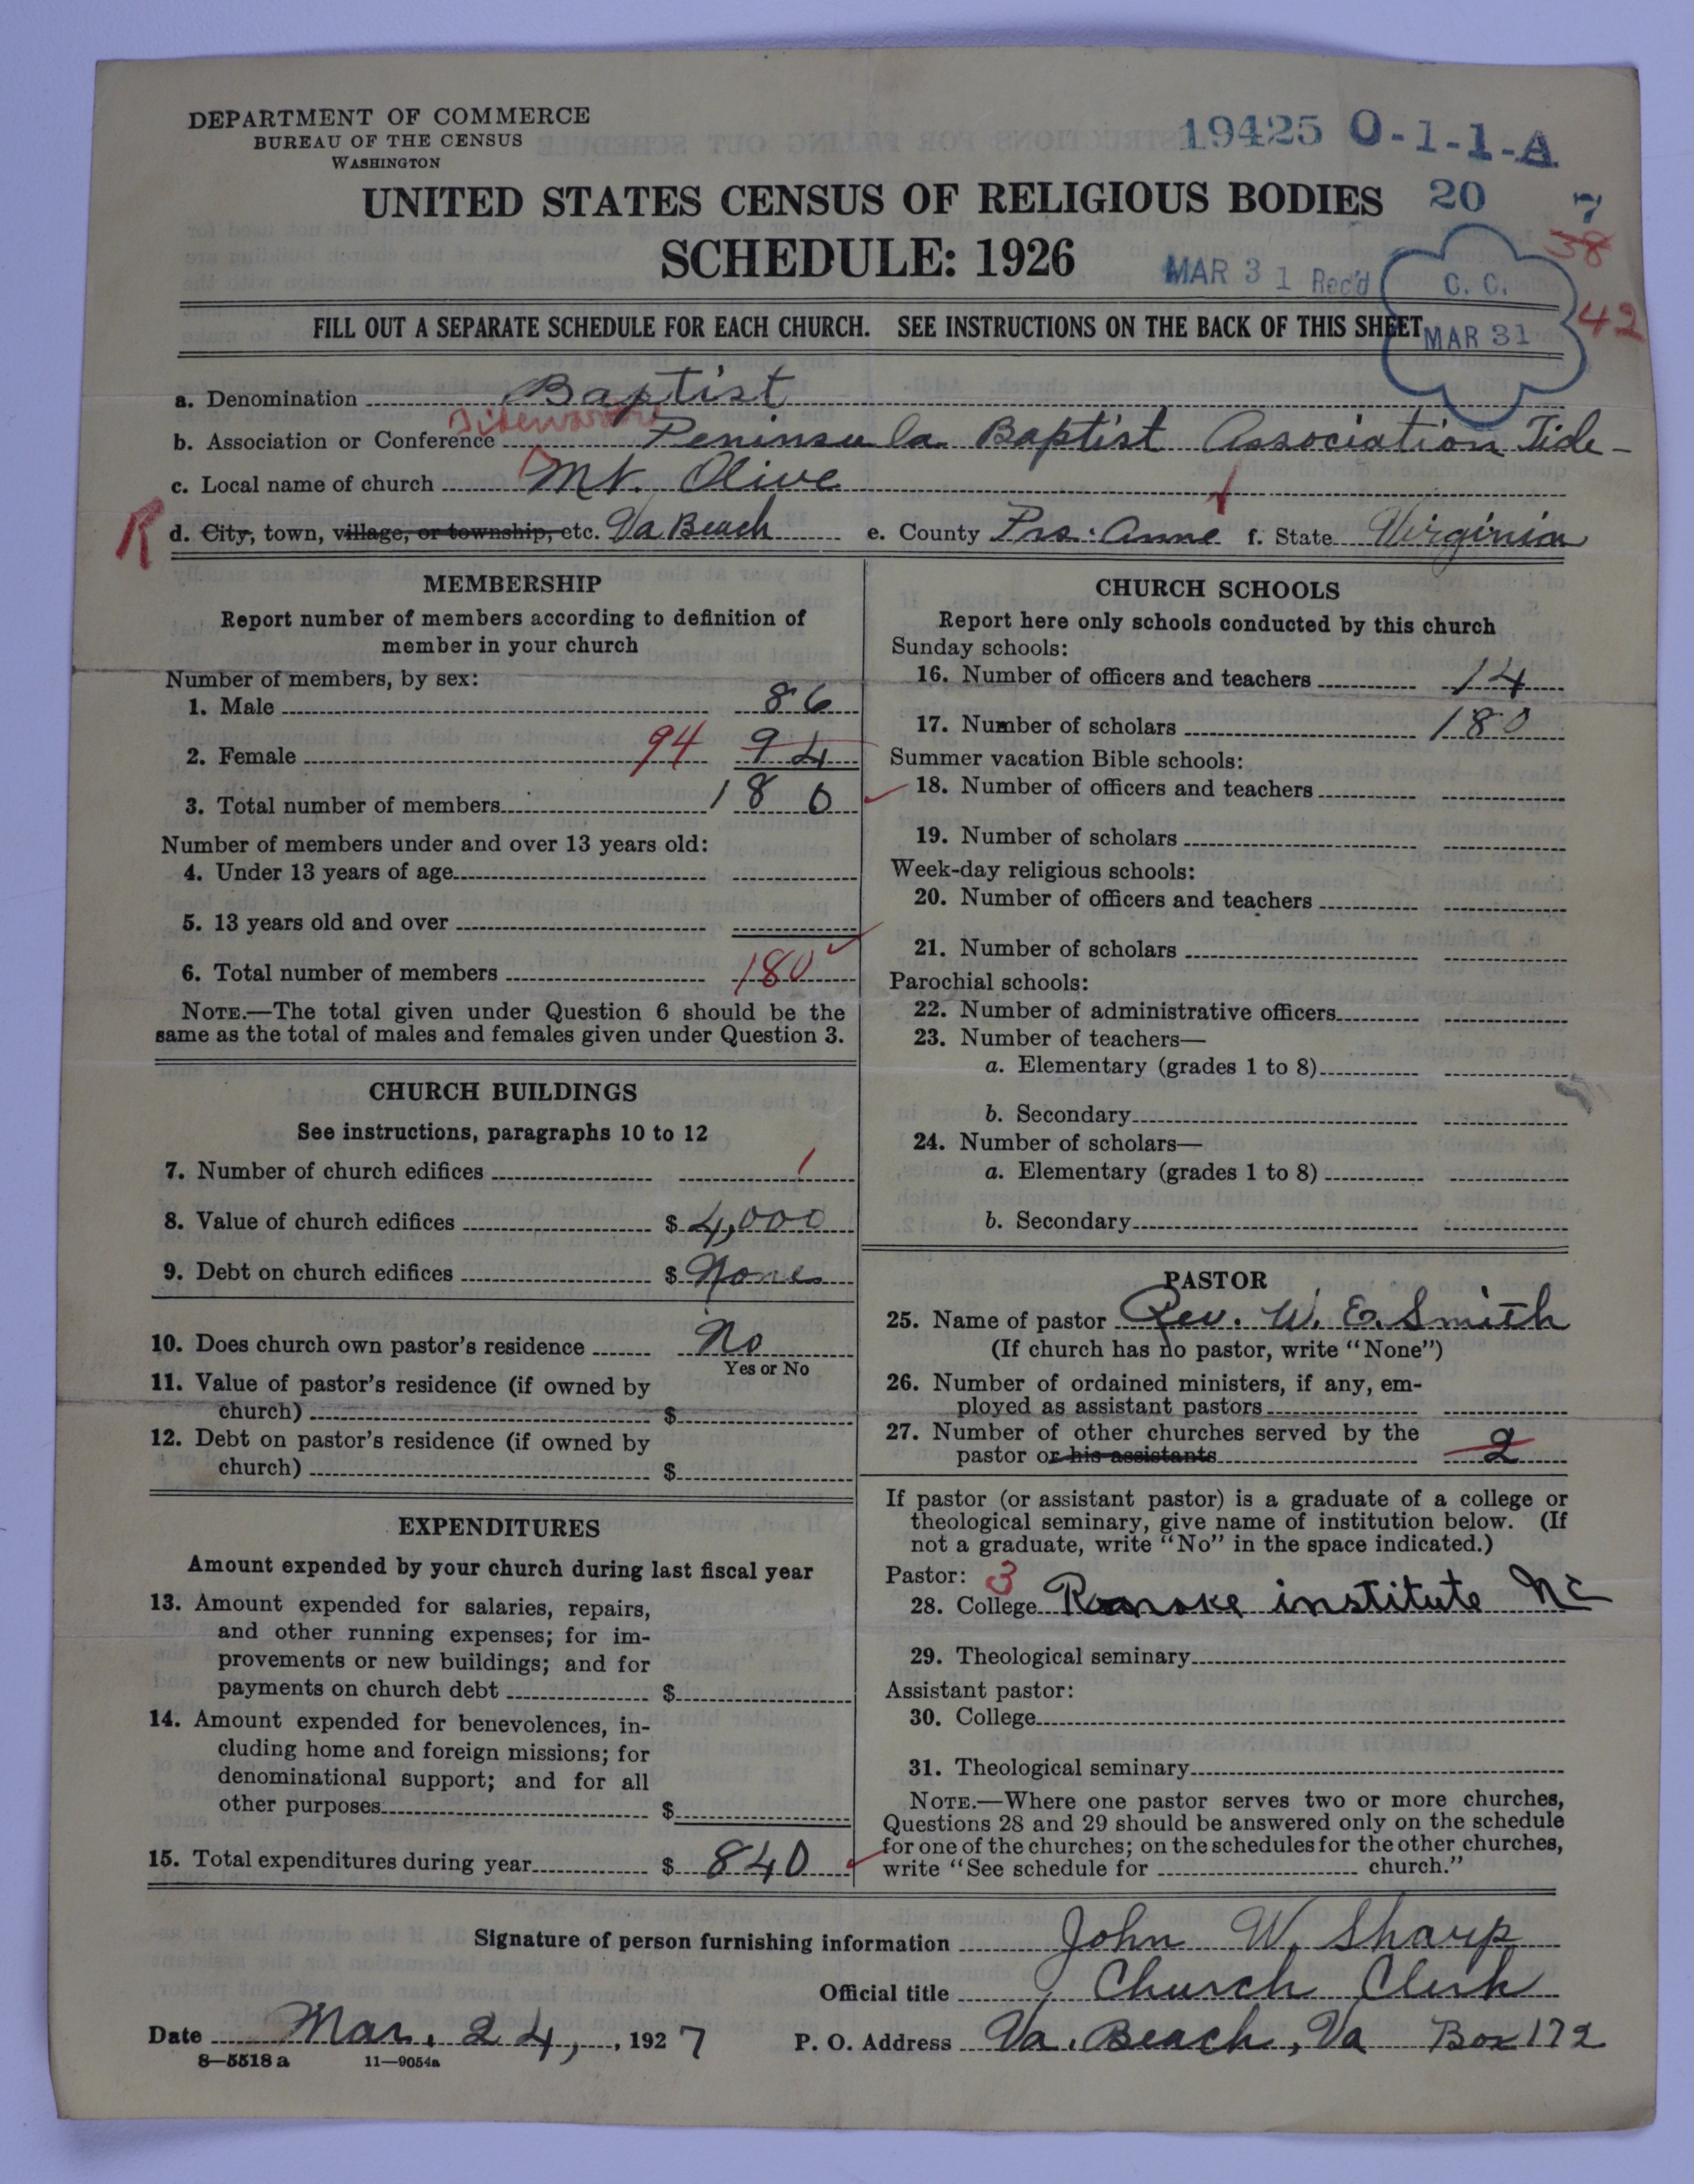 DEPARTMENT OF COMMERCE
BUREAU OF THE CENSUS
WASHINGTON
19425 O-1-1-A
UNITED STATES CENSUS OF RELIGIOUS BODIES
20
7
38
SCHEDULE: 1926
MAR 31 Rec'd
C. C.
MAR 31
42
FILL OUT A SEPARATE SCHEDULE FOR EACH CHURCH. SEE INSTRUCTIONS ON THE BACK OF THIS SHEET
a. Denomination Baptist
b. Association or Conference Peninsula Baptist Association Tide-
c. Local name of church Mt. Olive
R
d. City, town, village, or township, etc. Va Beach e. County Prs. Anne f. State Virginia
MEMBERSHIP
Report number of members according to definition of
member in your church
Number of members, by sex:
1. Male 86
2. Female 94 94
3. Total number of members 180
Number of members under and over 13 years old:
4. Under 13 years of age
5. 13 years old and over
6. Total number of members 180
NOTE.—The total given under Question 6 should be the
same as the total of males and females given under Question 3.
CHURCH BUILDINGS
See instructions, paragraphs 10 to 12
7. Number of church edifices 1
8. Value of church edifices $ 4,000
9. Debt on church edifices $ None
10. Does church own pastor's residence No
Yes or No
11. Value of pastor's residence (if owned by
church) $
12. Debt on pastor's residence (if owned by
church) $
EXPENDITURES
Amount expended by your church during last fiscal year
13. Amount expended for salaries, repairs,
and other running expenses; for im-
provements or new buildings; and for
payments on church debt $
14. Amount expended for benevolences, in-
cluding home and foreign missions; for
denominational support; and for all
other purposes $
15. Total expenditures during year $ 840
CHURCH SCHOOLS
Report here only schools conducted by this church
Sunday schools:
16. Number of officers and teachers 14
17. Number of scholars 180
Summer vacation Bible schools:
18. Number of officers and teachers
19. Number of scholars
Week-day religious schools:
20. Number of officers and teachers
21. Number of scholars
Parochial schools:
22. Number of administrative officers
23. Number of teachers—
a. Elementary (grades 1 to 8)
b. Secondary
24. Number of scholars—
a. Elementary (grades 1 to 8)
b. Secondary
PASTOR
25. Name of pastor Rev. W. E. Smith
(If church has no pastor, write "None")
26. Number of ordained ministers, if any, em-
ployed as assistant pastors
27. Number of other churches served by the
pastor or his assistants 2
If pastor (or assistant pastor) is a graduate of a college or
theological seminary, give name of institution below. (If
not a graduate, write "No" in the space indicated.)
Pastor: 3
28. College Roanoke institute NC
29. Theological seminary
Assistant pastor:
30. College
31. Theological seminary
NOTE.—Where one pastor serves two or more churches,
Questions 28 and 29 should be answered only on the schedule
for one of the churches; on the schedules for the other churches,
write "See schedule for church."
Signature of person furnishing information John W. Sharp
Official title Church Clerk
Date Mar. 24, , 1927 P. O. Address Va. Beach, Va Box 172
8—5518 a 11—9054a